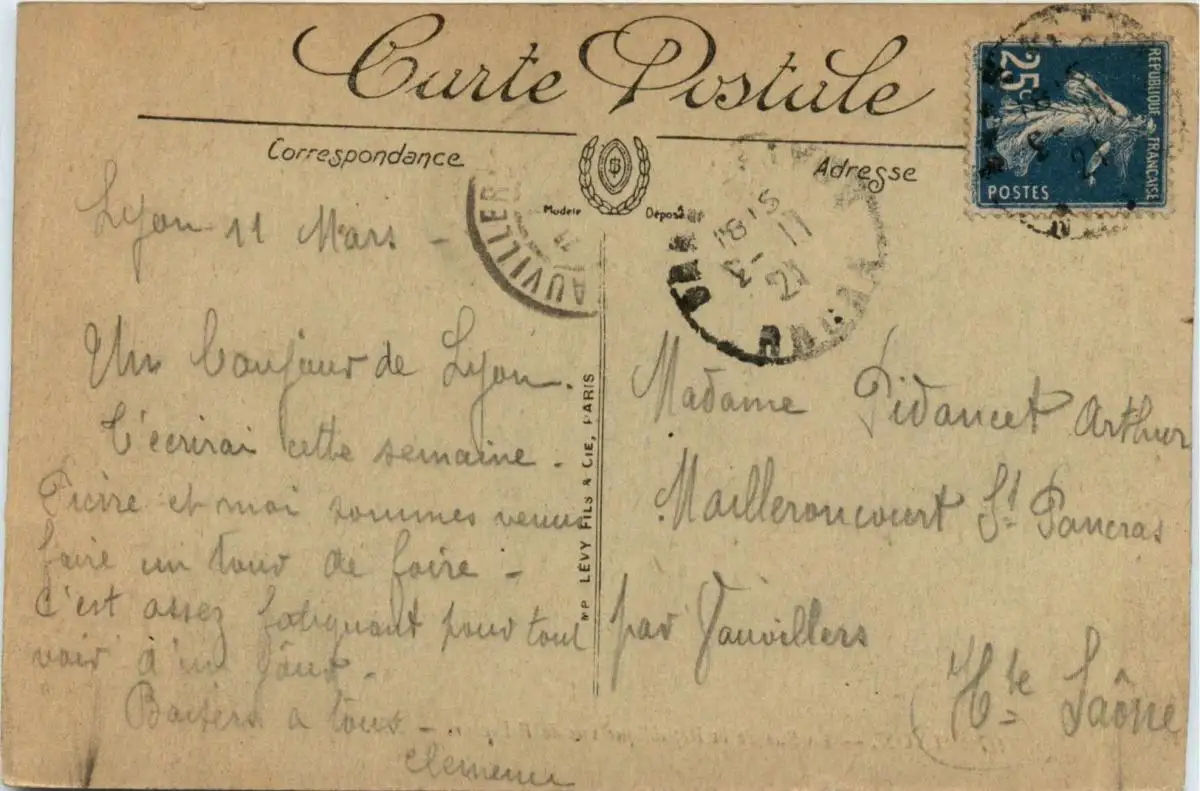 Carte Postale
Correspondance
Adresse
Modèle Déposé
RÉPUBLIQUE FRANÇAISE
25c
POSTES
AUVILLER
18 15
11 - 3
21
Lyon 11 Mars -
Un bonjour de Lyon.
t'écrirai cette semaine.
et moi sommes venus
faire un tour de foire -
C'est assez fatiguant pour tout
voir à un jour.
Baisers a tous -
Clémence
MP LÉVY FILS & CIE, PARIS
Madame Pidancet Arthur
Mailleroncourt St Pancras
par Vauvillers
Hte Saône